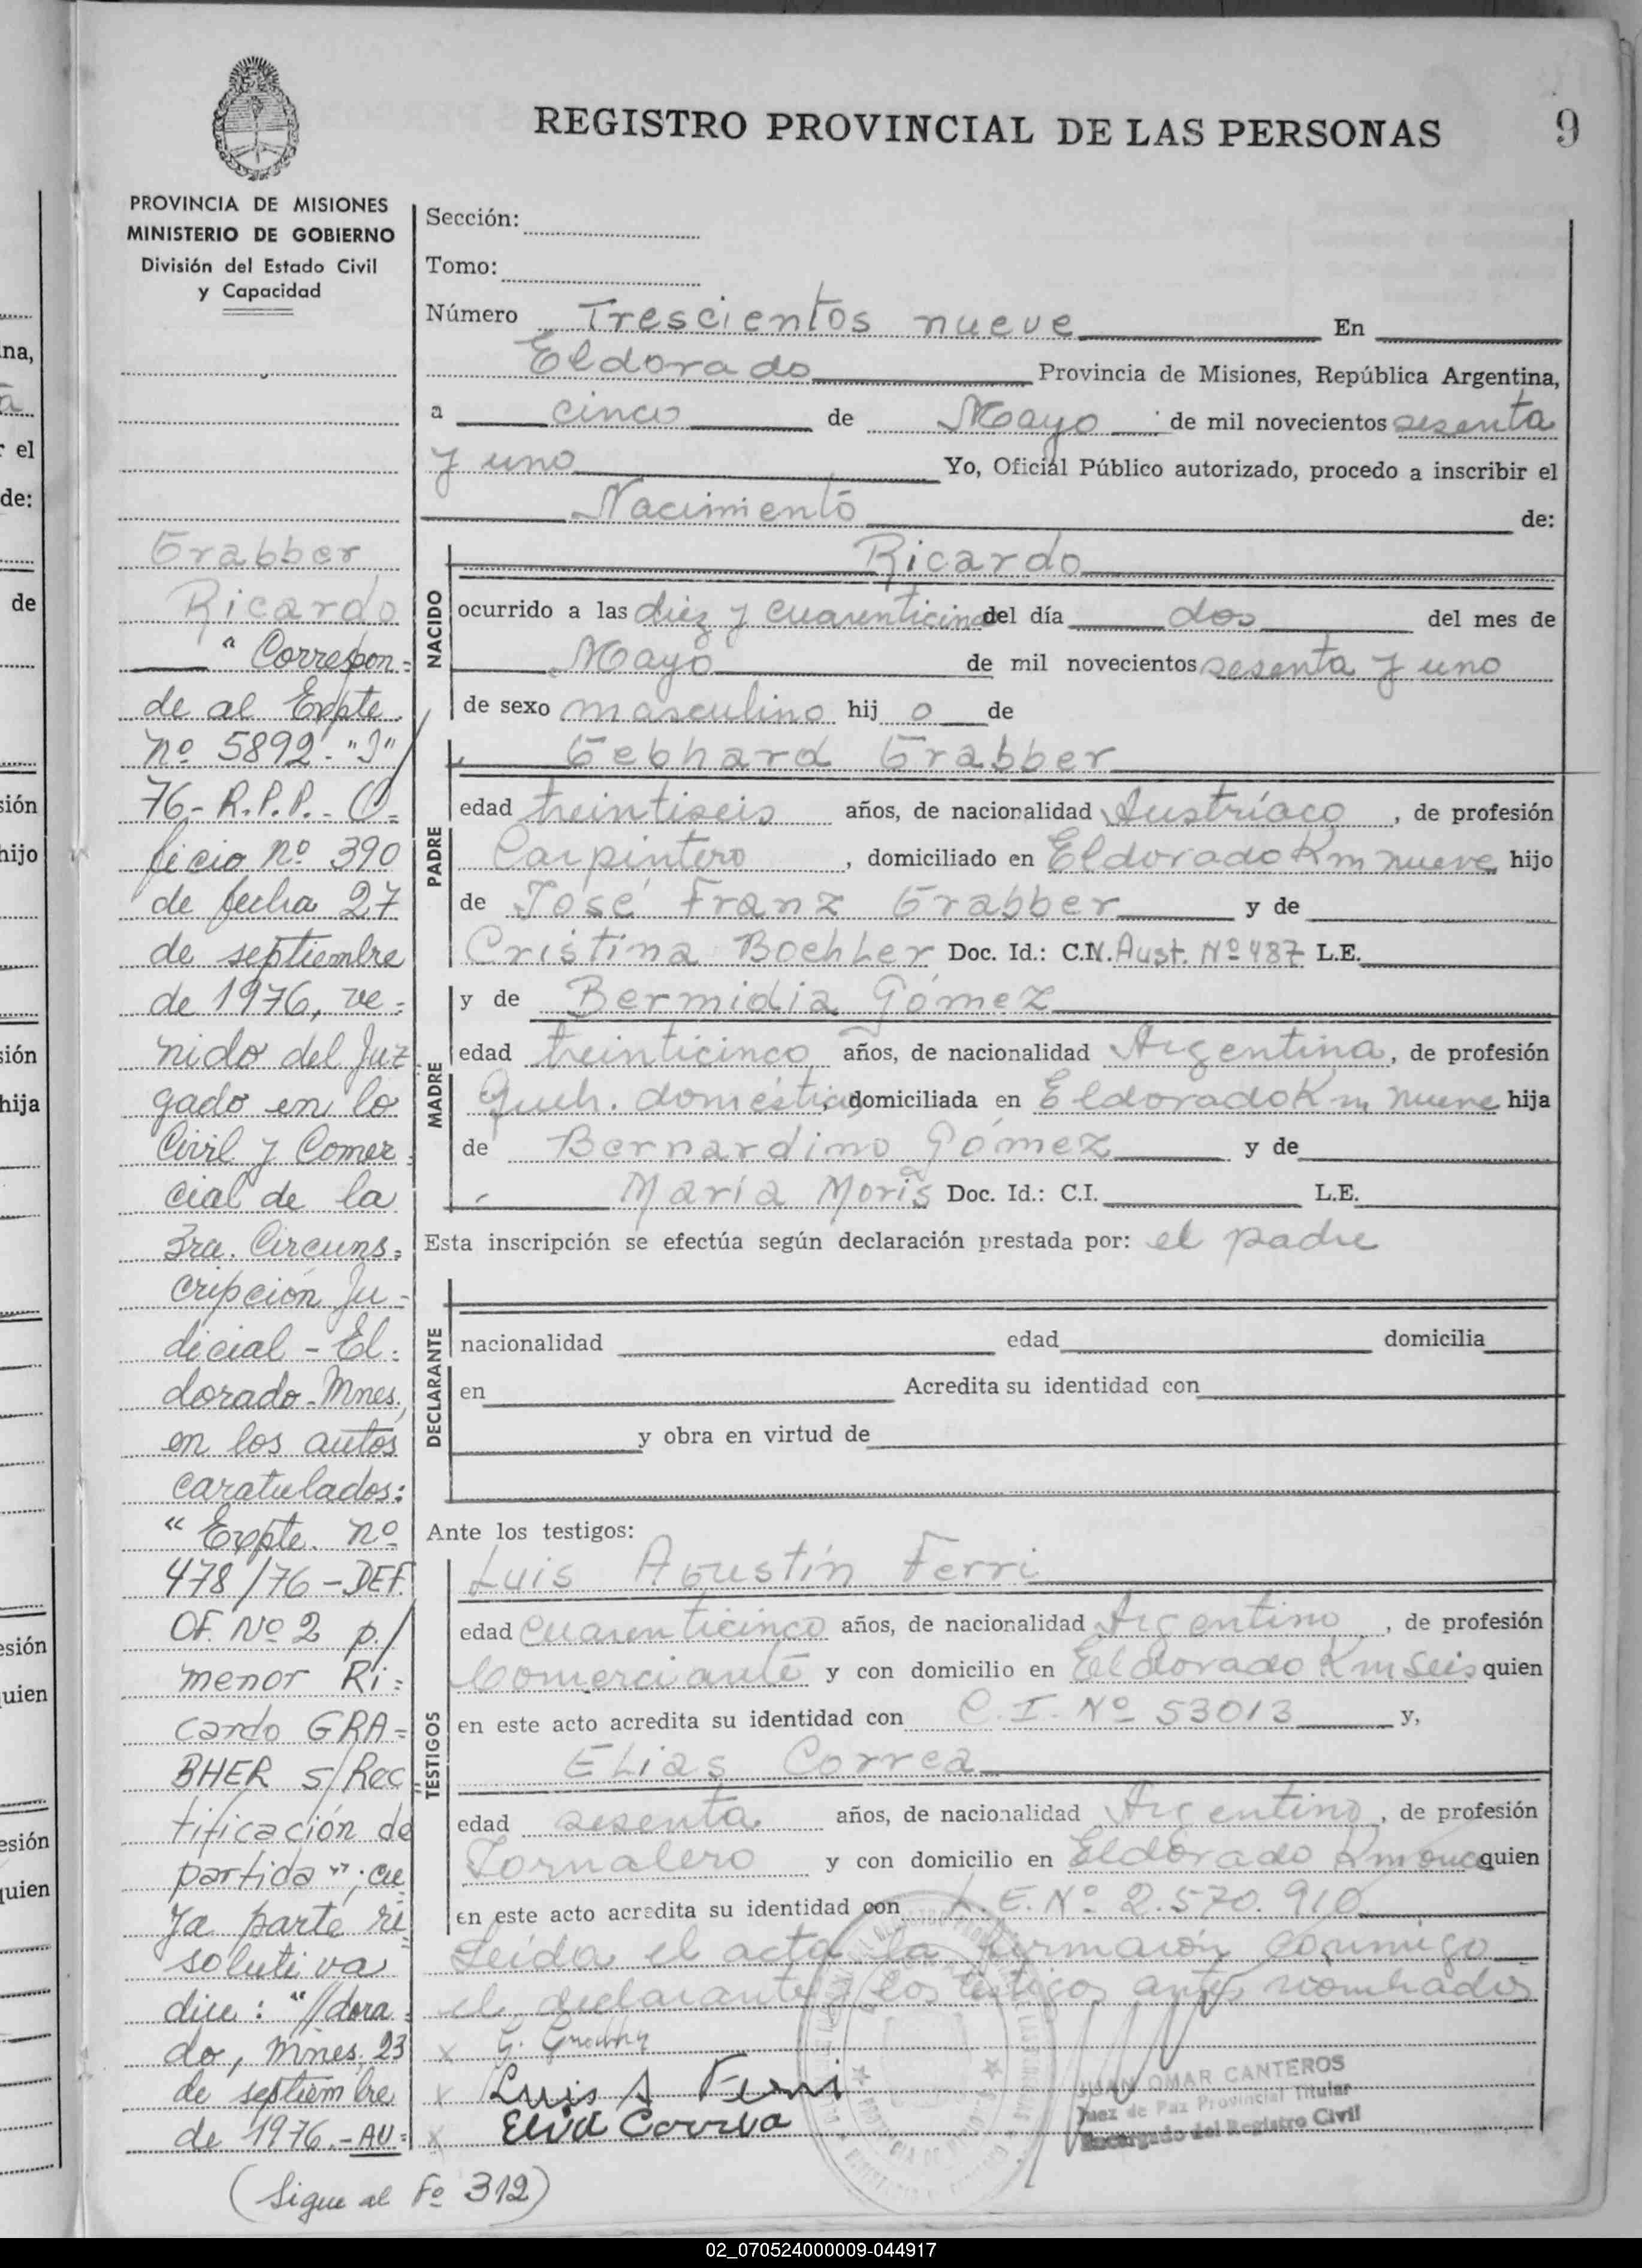 REGISTRO PROVINCIAL DE LAS PERSONAS 9
PROVINCIA DE MISIONES
MINISTERIO DE GOBIERNO
División del Estado Civil
y Capacidad
Grabber
Ricardo
" Correspon=
de al Expte.
nº 5892-"J"/
76-R.P.P.- O=
ficio nº 390
de fecha 27
de septiembre
de 1976, ve=
nido del Juz
gado en lo
Civil y Comer
cial de la
3ra. Circuns=
cripción Ju-
dicial - El=
dorado-Mnes.,
en los autos
caratulados:
"Expte. nº
478/76-DEF.
OF. Nº 2 p./
menor Ri=
cardo GRA=
BHER s/Rec
tificación de
partida"; cu
ya parte re
solutiva
dice: "//dora=
do, Mnes, 23
de septiembre
de 1976.-AU=
(Sigue al Fº 312)
Sección:
Tomo:
Número Trescientos nueve En
Eldorado Provincia de Misiones, República Argentina,
a cinco de Mayo de mil novecientos sesenta
y uno Yo, Oficial Público autorizado, procedo a inscribir el
Nacimiento de:
NACIDO
Ricardo
ocurrido a las diez y cuarenticinco del día dos del mes de
Mayo de mil novecientos sesenta y uno
de sexo masculino hij o de
PADRE
Gebhard Grabber
edad treintiseis años, de nacionalidad Austríaco, de profesión
Carpintero, domiciliado en Eldorado Km nueve hijo
de José Franz Grabber y de
Cristina Boehler Doc. Id.: C.N. Aust. Nº 487 L.E.
MADRE
y de Bermidia Gómez
edad treinticinco años, de nacionalidad Argentina, de profesión
Queh. domésticos, domiciliada en Eldorado Km nueve hija
de Bernardino Gómez y de
María Moris Doc. Id.: C.I. L.E.
Esta inscripción se efectúa según declaración prestada por: el padre
DECLARANTE
nacionalidad edad domicilia
en Acredita su identidad con
y obra en virtud de
Ante los testigos:
TESTIGOS
Luis Agustín Ferri
edad Cuarenticinco años, de nacionalidad Argentino, de profesión
Comerciante y con domicilio en Eldorado Km seis quien
en este acto acredita su identidad con C.I. Nº 53013 y,
Elias Correa
edad sesenta años, de nacionalidad Argentino, de profesión
Jornalero y con domicilio en Eldorado Km once quien
en este acto acredita su identidad con L.E. Nº 2.570.910
Leída el acta la firmaron conmigo
el declarante y los testigos antes nombrados
x G.
x Luis A Ferri
x Elia Correa
JUAN OMAR CANTEROS
Juez de Paz Provincial Titular
Encargado del Registro Civil
02_070524000009-044917